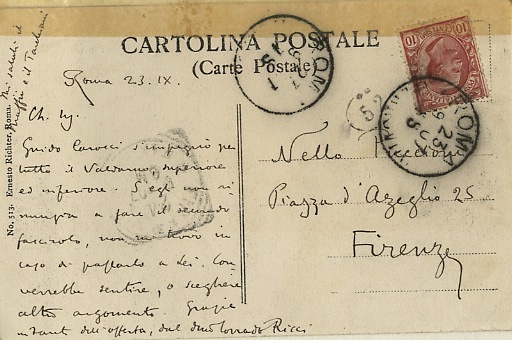 CARTOLINA POSTALE
(Carte Postale)
Roma 23.IX.
Ch. Sig.
Guido Carocci s'impegnò per
tutto il Valdarno superiore
ed inferiore. S'egli non ri
nunzia a fare il secondo
fascicolo, non mi trovo in
caso di passarlo a Lei. Con
verrebbe sentire, o scegliere
altro argomento. Grazie
intanto dell'offerta, dal
Corrado Ricci
Mi saluti il
e il Tarchiani
No. 513. Ernesto Richter, Roma.
ROMA
52
ROMA
23
10
10
Nello
Piazza d'Azeglio 25
Firenze